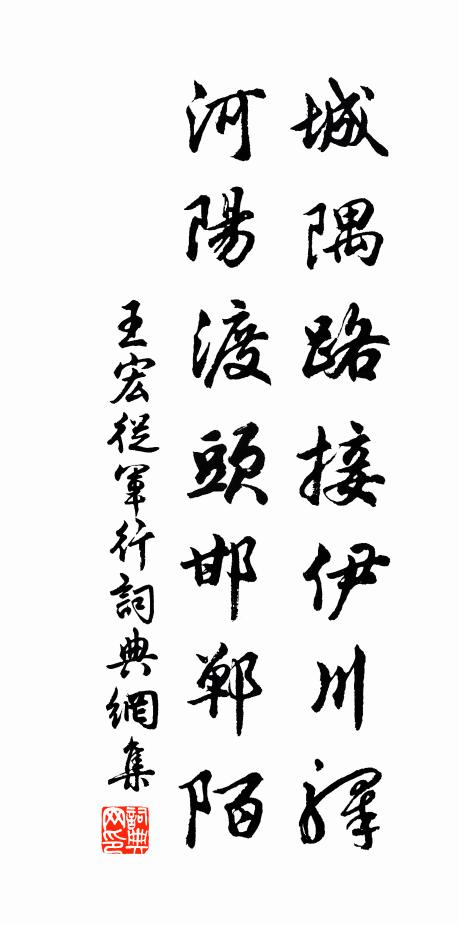 城隅路接伊川驛
河陽渡頭邯鄲陌
王宏從軍行詞典網集
詞典網印